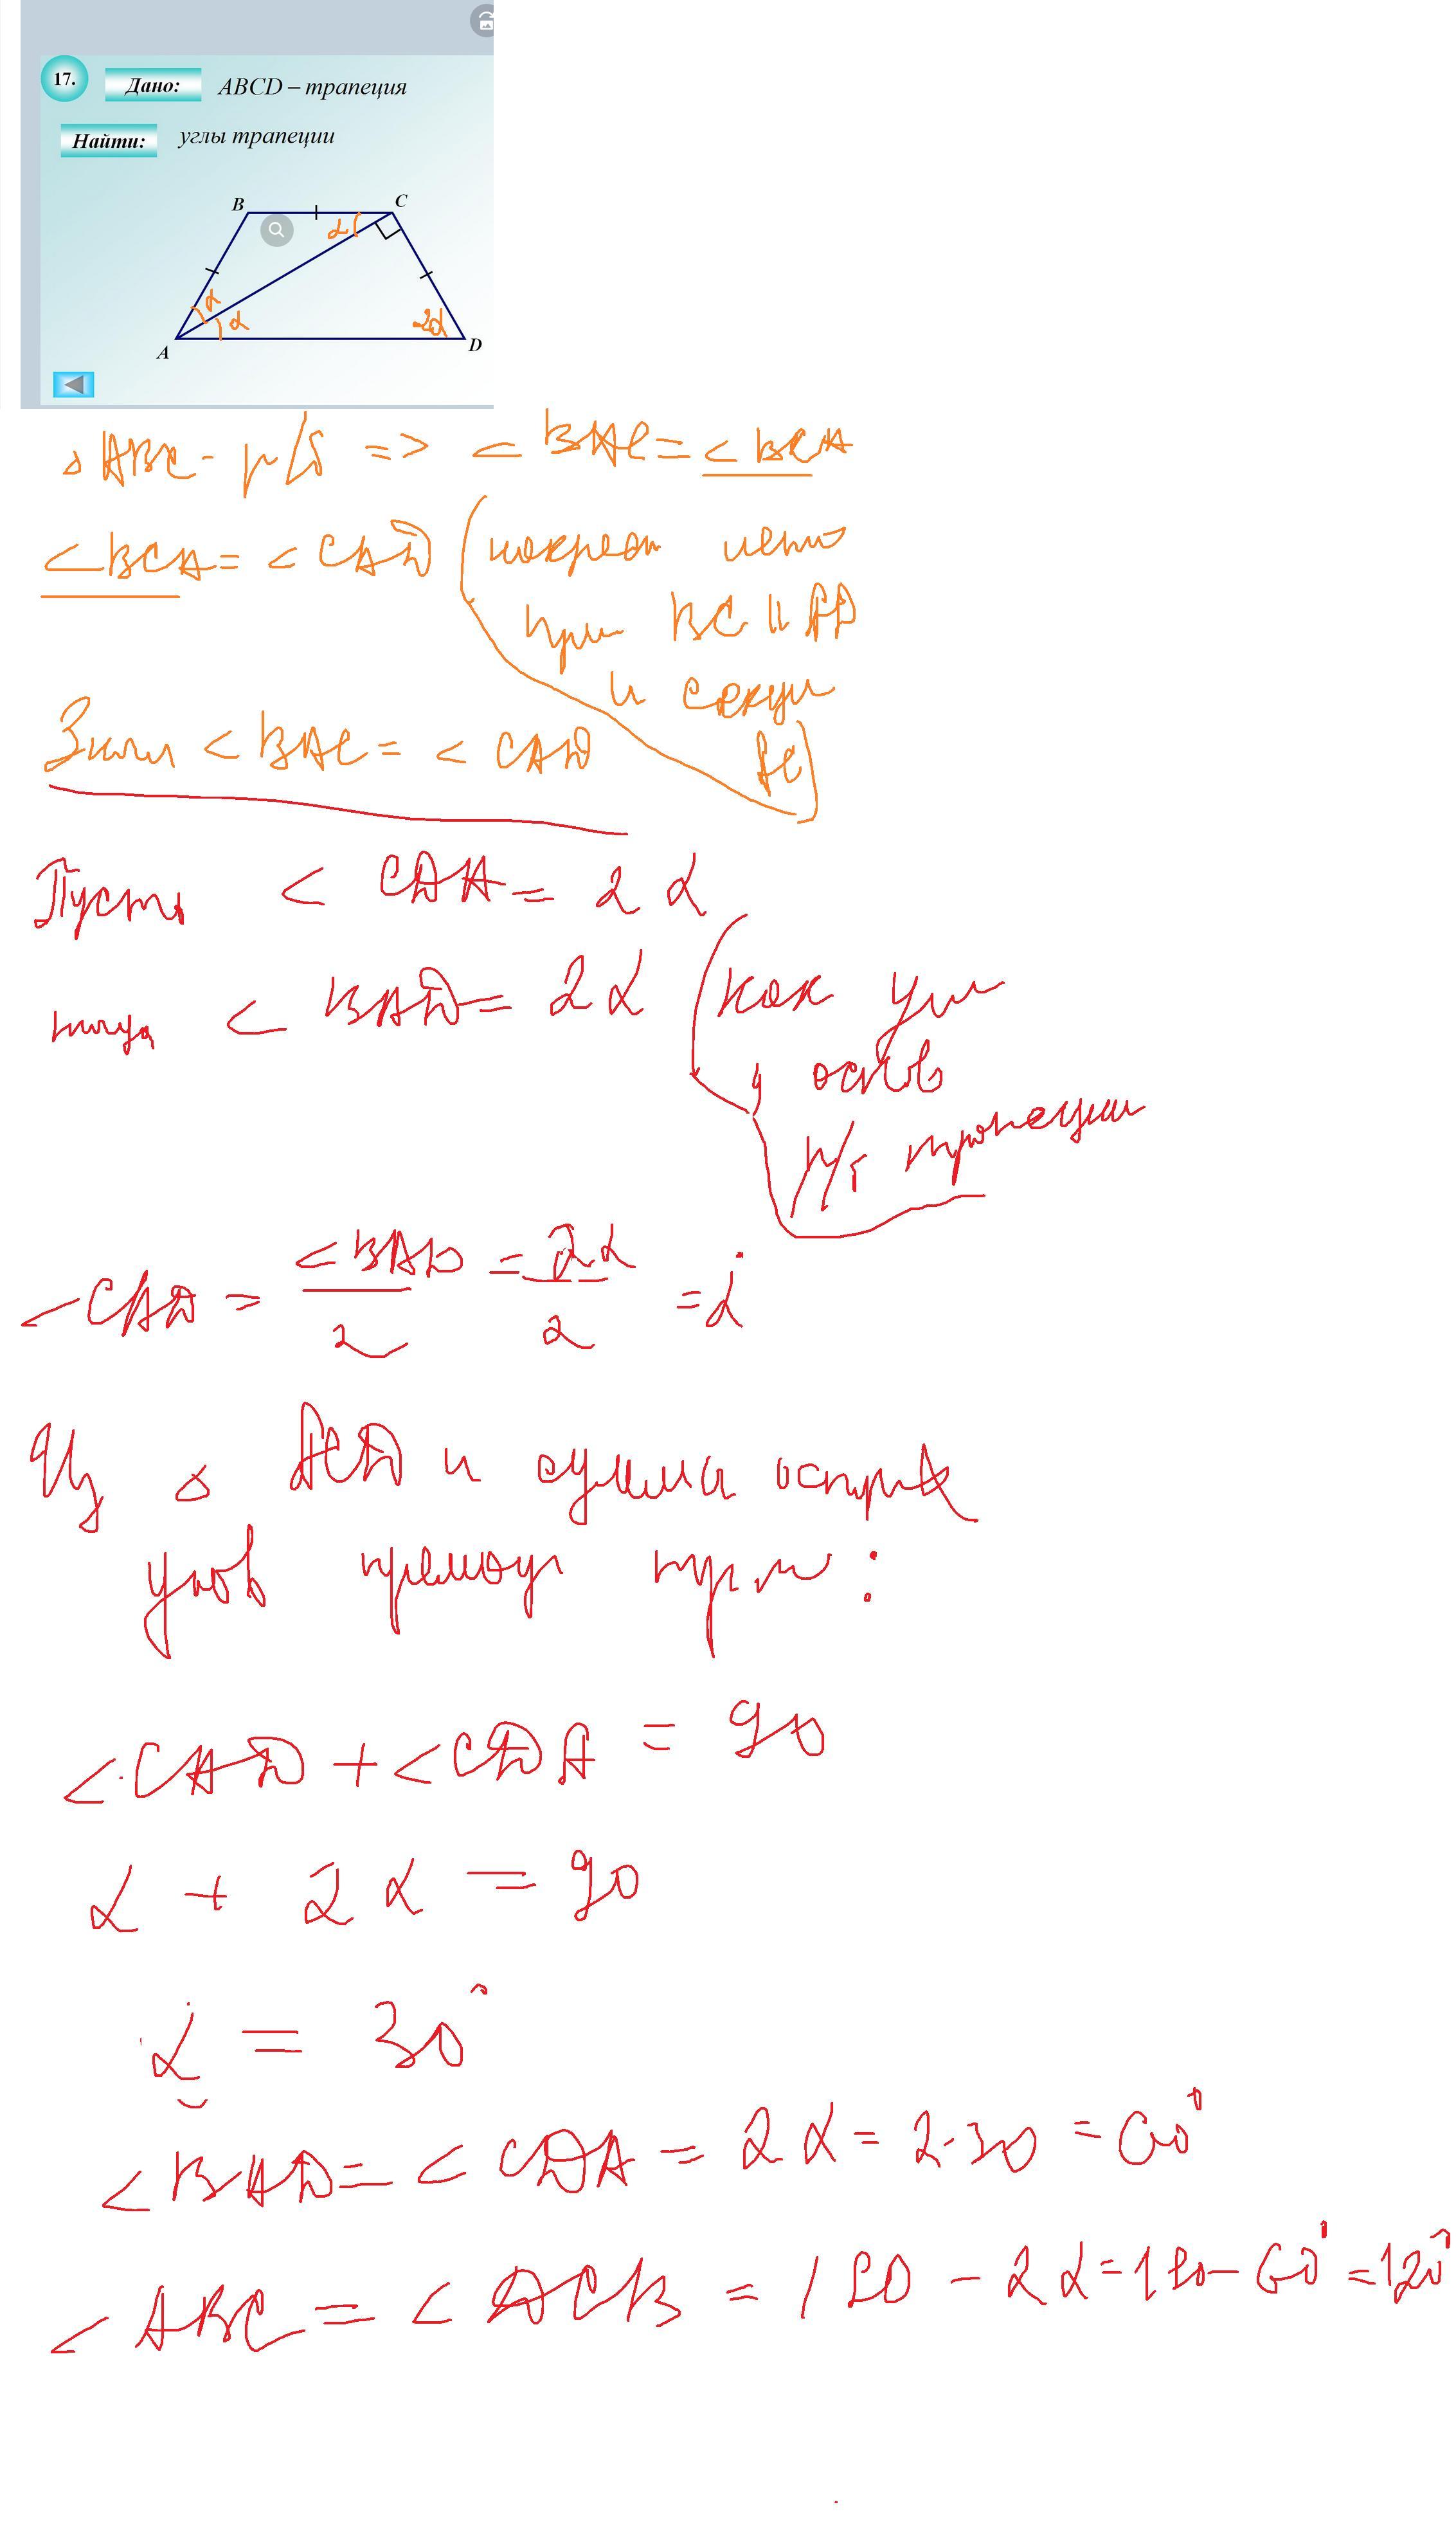 17. Дано: ABCD – трапеция
Найти: углы трапеции
B C
α
α
α 2α
A D
△ ABC - р/б => < BAC = < BCA
< BCA = < CAD (накрест
при BC || AD
и секущ
AC)
Значит < BAC = < CAD
Пусть < CDA = 2α
тогда < BAD = 2α (как углы
у основ
р/б трапеции
< CAD = < BAD / 2 = 2α / 2 = α
Из △ ACD и сумма острых
углов прямоуг :
< CAD + < CDA = 90
α + 2α = 90
α = 30°
< BAD = < CDA = 2α = 2·30 = 60°
< ABC = < DCB = 180 - 2α = 180 - 60° = 120°